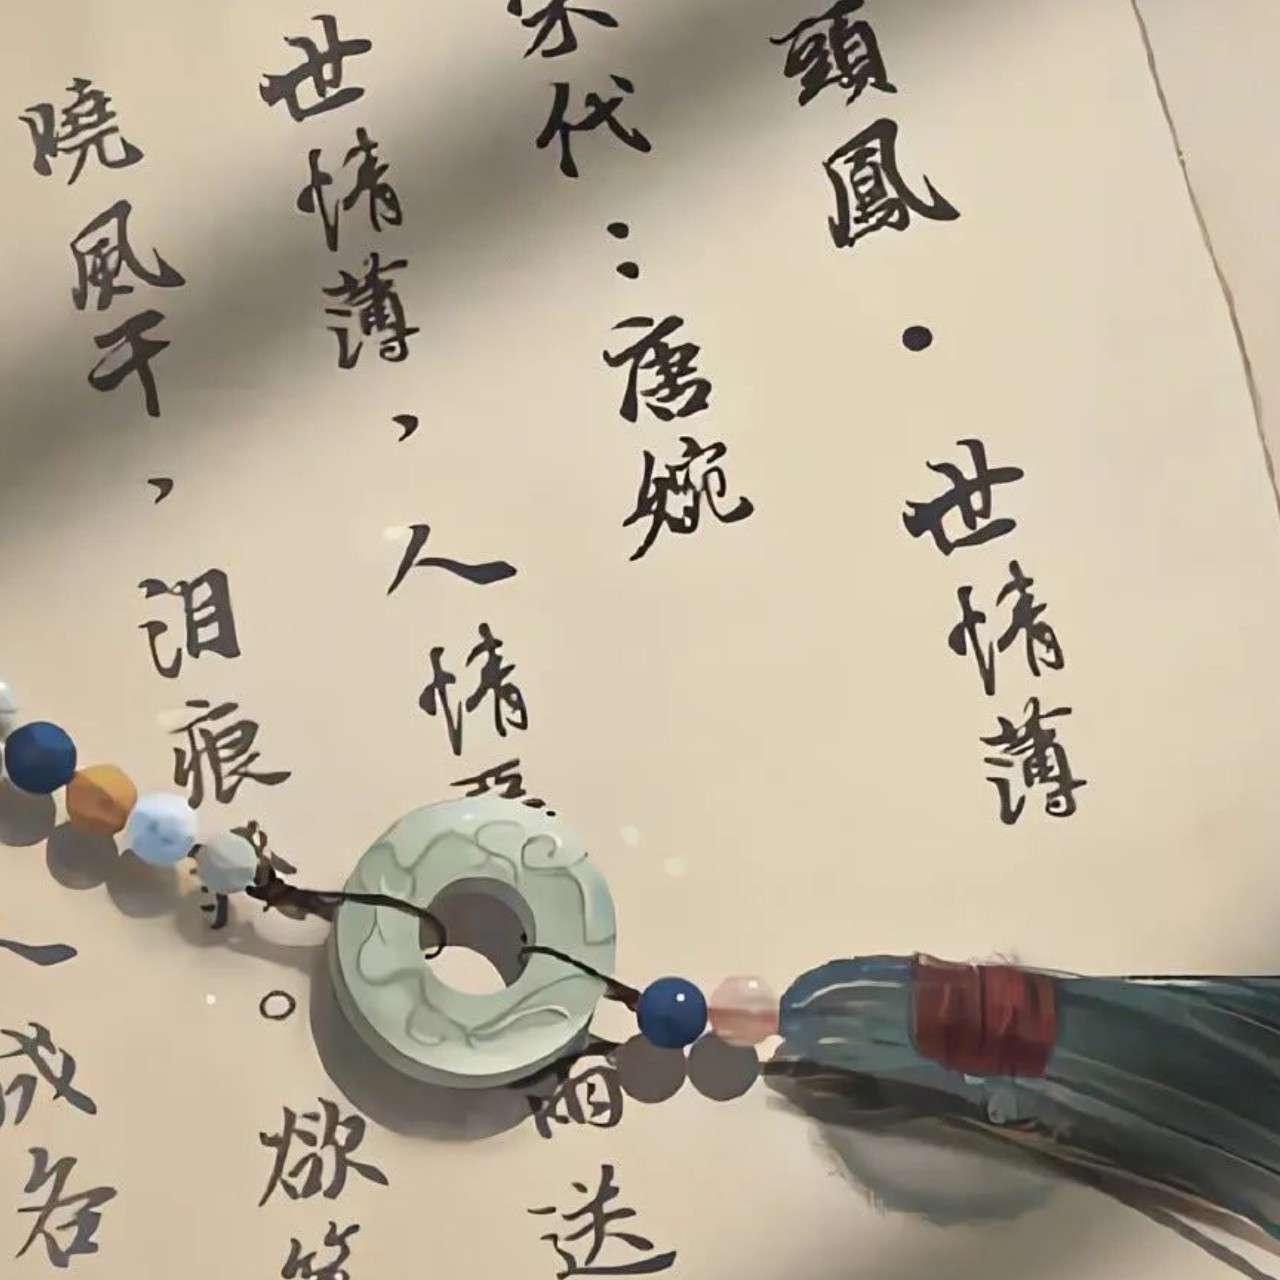 頭鳳·世情薄
宋代：唐婉
世情薄，人情 雨送
曉風干，泪痕 。欲
成各